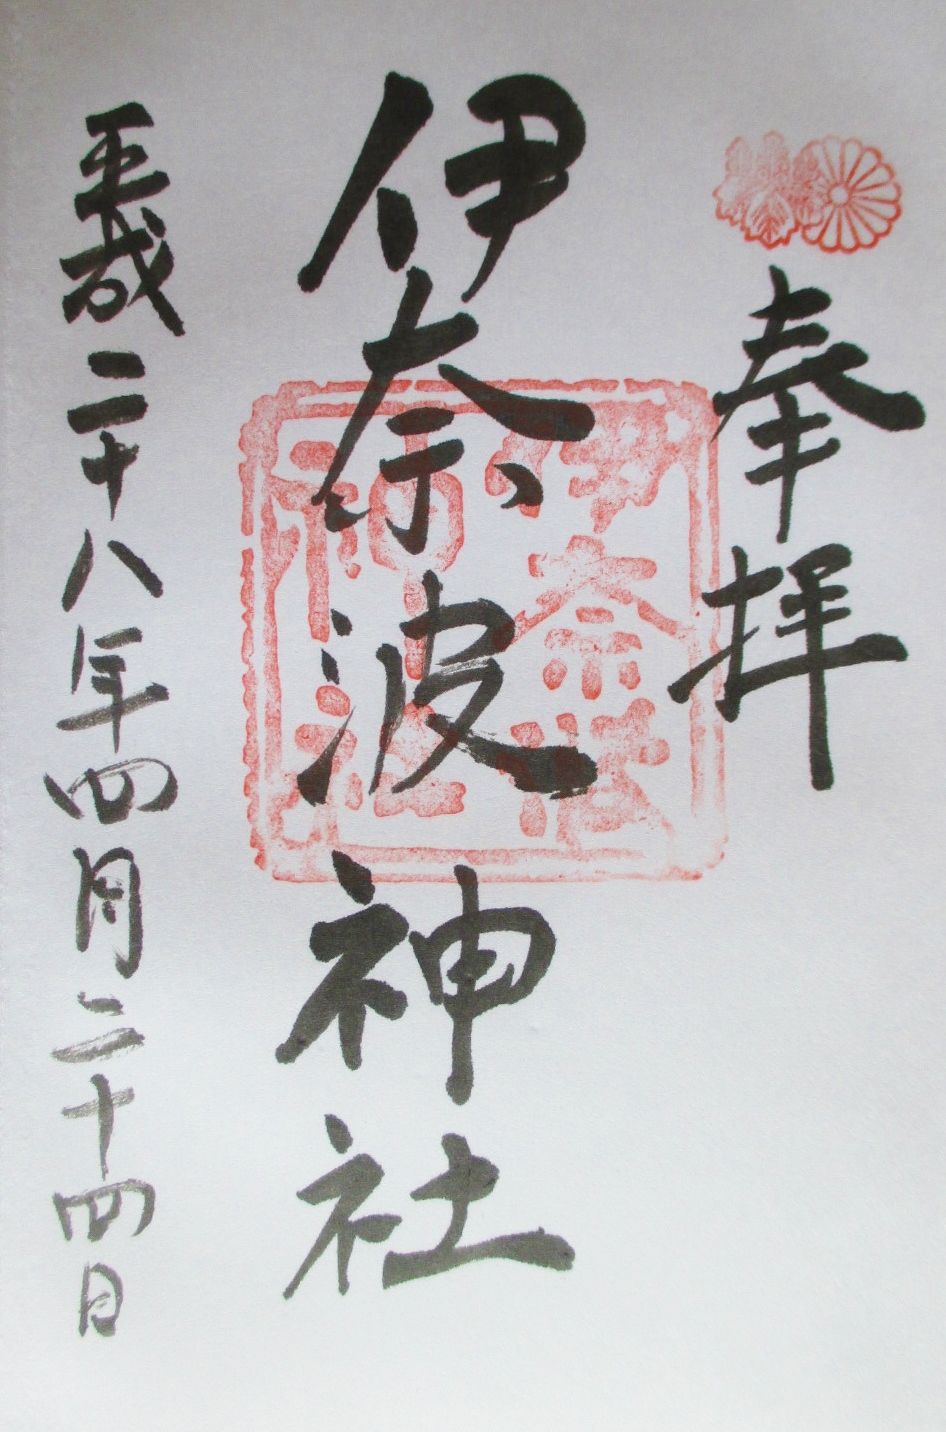 奉拝
伊奈波神社
伊奈波
神社
平成二十八年四月二十四日